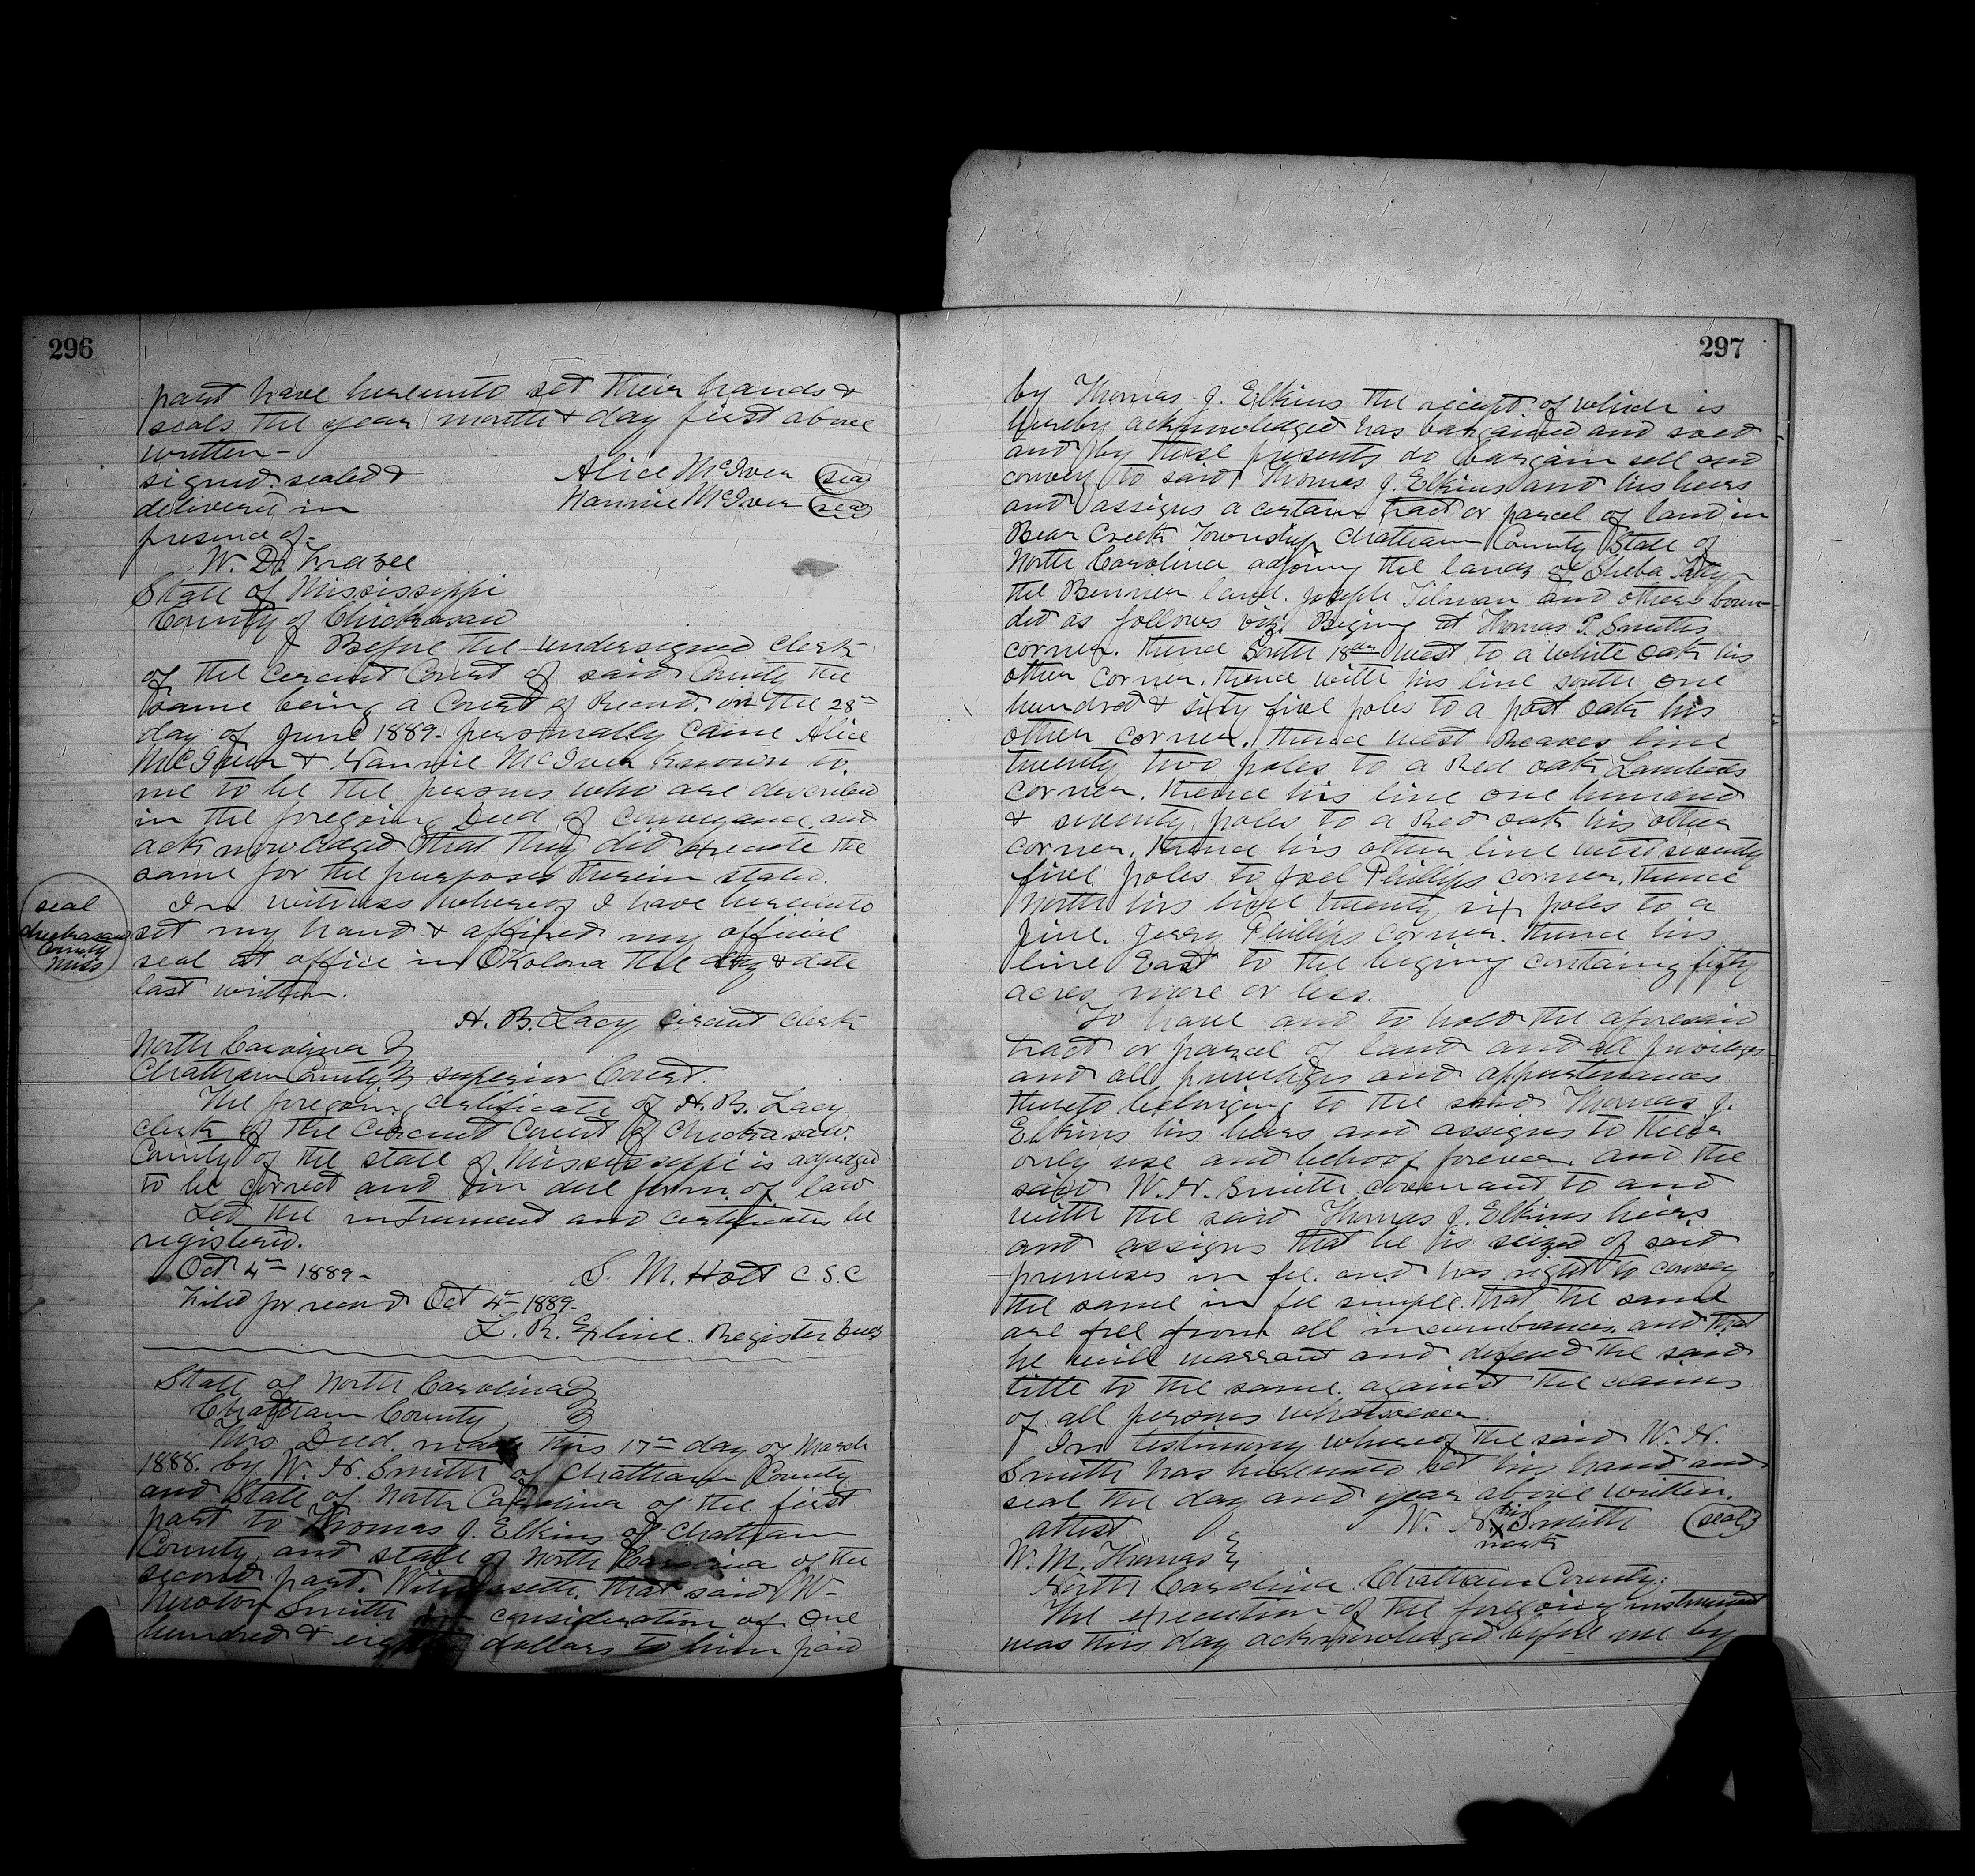 296
part have hereunto set their hands &
seals the year month & day first above
written-
signed. sealed &
delivered in
presence of-
Alice McIver (seal)
Nannie McIver (seal)
W. D. Frazee
State of Mississippi
County of Chickasaw
Before the undersigned Clerk
of the Circuit Court of said County the
same being a Court of Record. on the 28th
day of June 1889- personally came Alice
McIver & Nannie McIver known to.
me to be the persons who are described
in the foregoing Deed of Conveyance and
acknowledged that they did execute the
same for the purposes therein stated.
In witness whereof I have hereunto
set my hand & affixed my official
seal at office in Okolona the day & date
last written.
seal
Chickasaw
County
Miss
H. B. Lacy Circuit Clerk
North Carolina
Chatham County superior Court.
The foregoing certificate of H. B. Lacy
clerk of the Circuit Court of Chickasaw.
County of the state of Mississippi is adjudged
to be correct and in due form of law
Let the instrument and certificates be
registered.
Oct 4th 1889-
S. M. Holt C.S.C
Filed for record Oct 4th 1889-
L. R. Exline. Register Deeds
State of North Carolina
Chatham County
This Deed. made this 17th day of March
1888. by W. N. Smith of Chatham County
and State of North Carolina of the first
part to Thomas J. Elkins of Chatham
County and state of North Carolina of the
second part. Witnesseth. that said W-
Newton Smith in consideration of One
hundred & dollars to him paid
297
by Thomas J. Elkins the reciept of which is
hereby acknowledged has bargained and sold
and by these presents do bargain sell and
convey to said Thomas J. Elkins and his heirs
and assigns a certain tract or parcel of land in
Bear Creek Township Chatham County State of
North Carolina adjoing the lands of Sheba
the land. Joseph Tilman and others boun-
ded as follows viz: Begining at Thomas P. Smiths
corner. thence South 18 West to a white oak his
other corner. thence with his line south one
hundred & sixty five poles to a post oak his
other corner. thence west Reaves line
twenty two poles to a Red oak Lamberts
corner. thence his line one hundred
& seventy poles to a Red oak his other
corner. thence his other line west seventy
five poles to Joel Phillips corner. thence
North his line twenty six poles to a
pine. Jerry Phillips corner. thence his
line East to the begining containg fifty
acres more or less.
To have and to hold the aforesaid
tract or parcel of land and all privileges
and all priviliges and appurtenances
thereto belonging to the said Thomas J.
Elkins his heirs and assigns to their
only use and behoof forever. and the
said W. N. Smith covenant to and
with the said Thomas J. Elkins heirs
and assigns that he is seized of said
premises in fee. and has right to convey
the same in fee simple. that the same
are free from all incumbrances. and that
he will warrant and defend the said
title to the same. against the claims
of all persons whatsoever.
In testimony whereof the said W. N.
Smith has hereunto set his hand and
seal the day and year above written.
attest
W. N. his x mark Smith (seal)
W. M. Thomas
North Carolina Chatham County:
The execution of the foregoing instrument
was this day acknowledged before me by